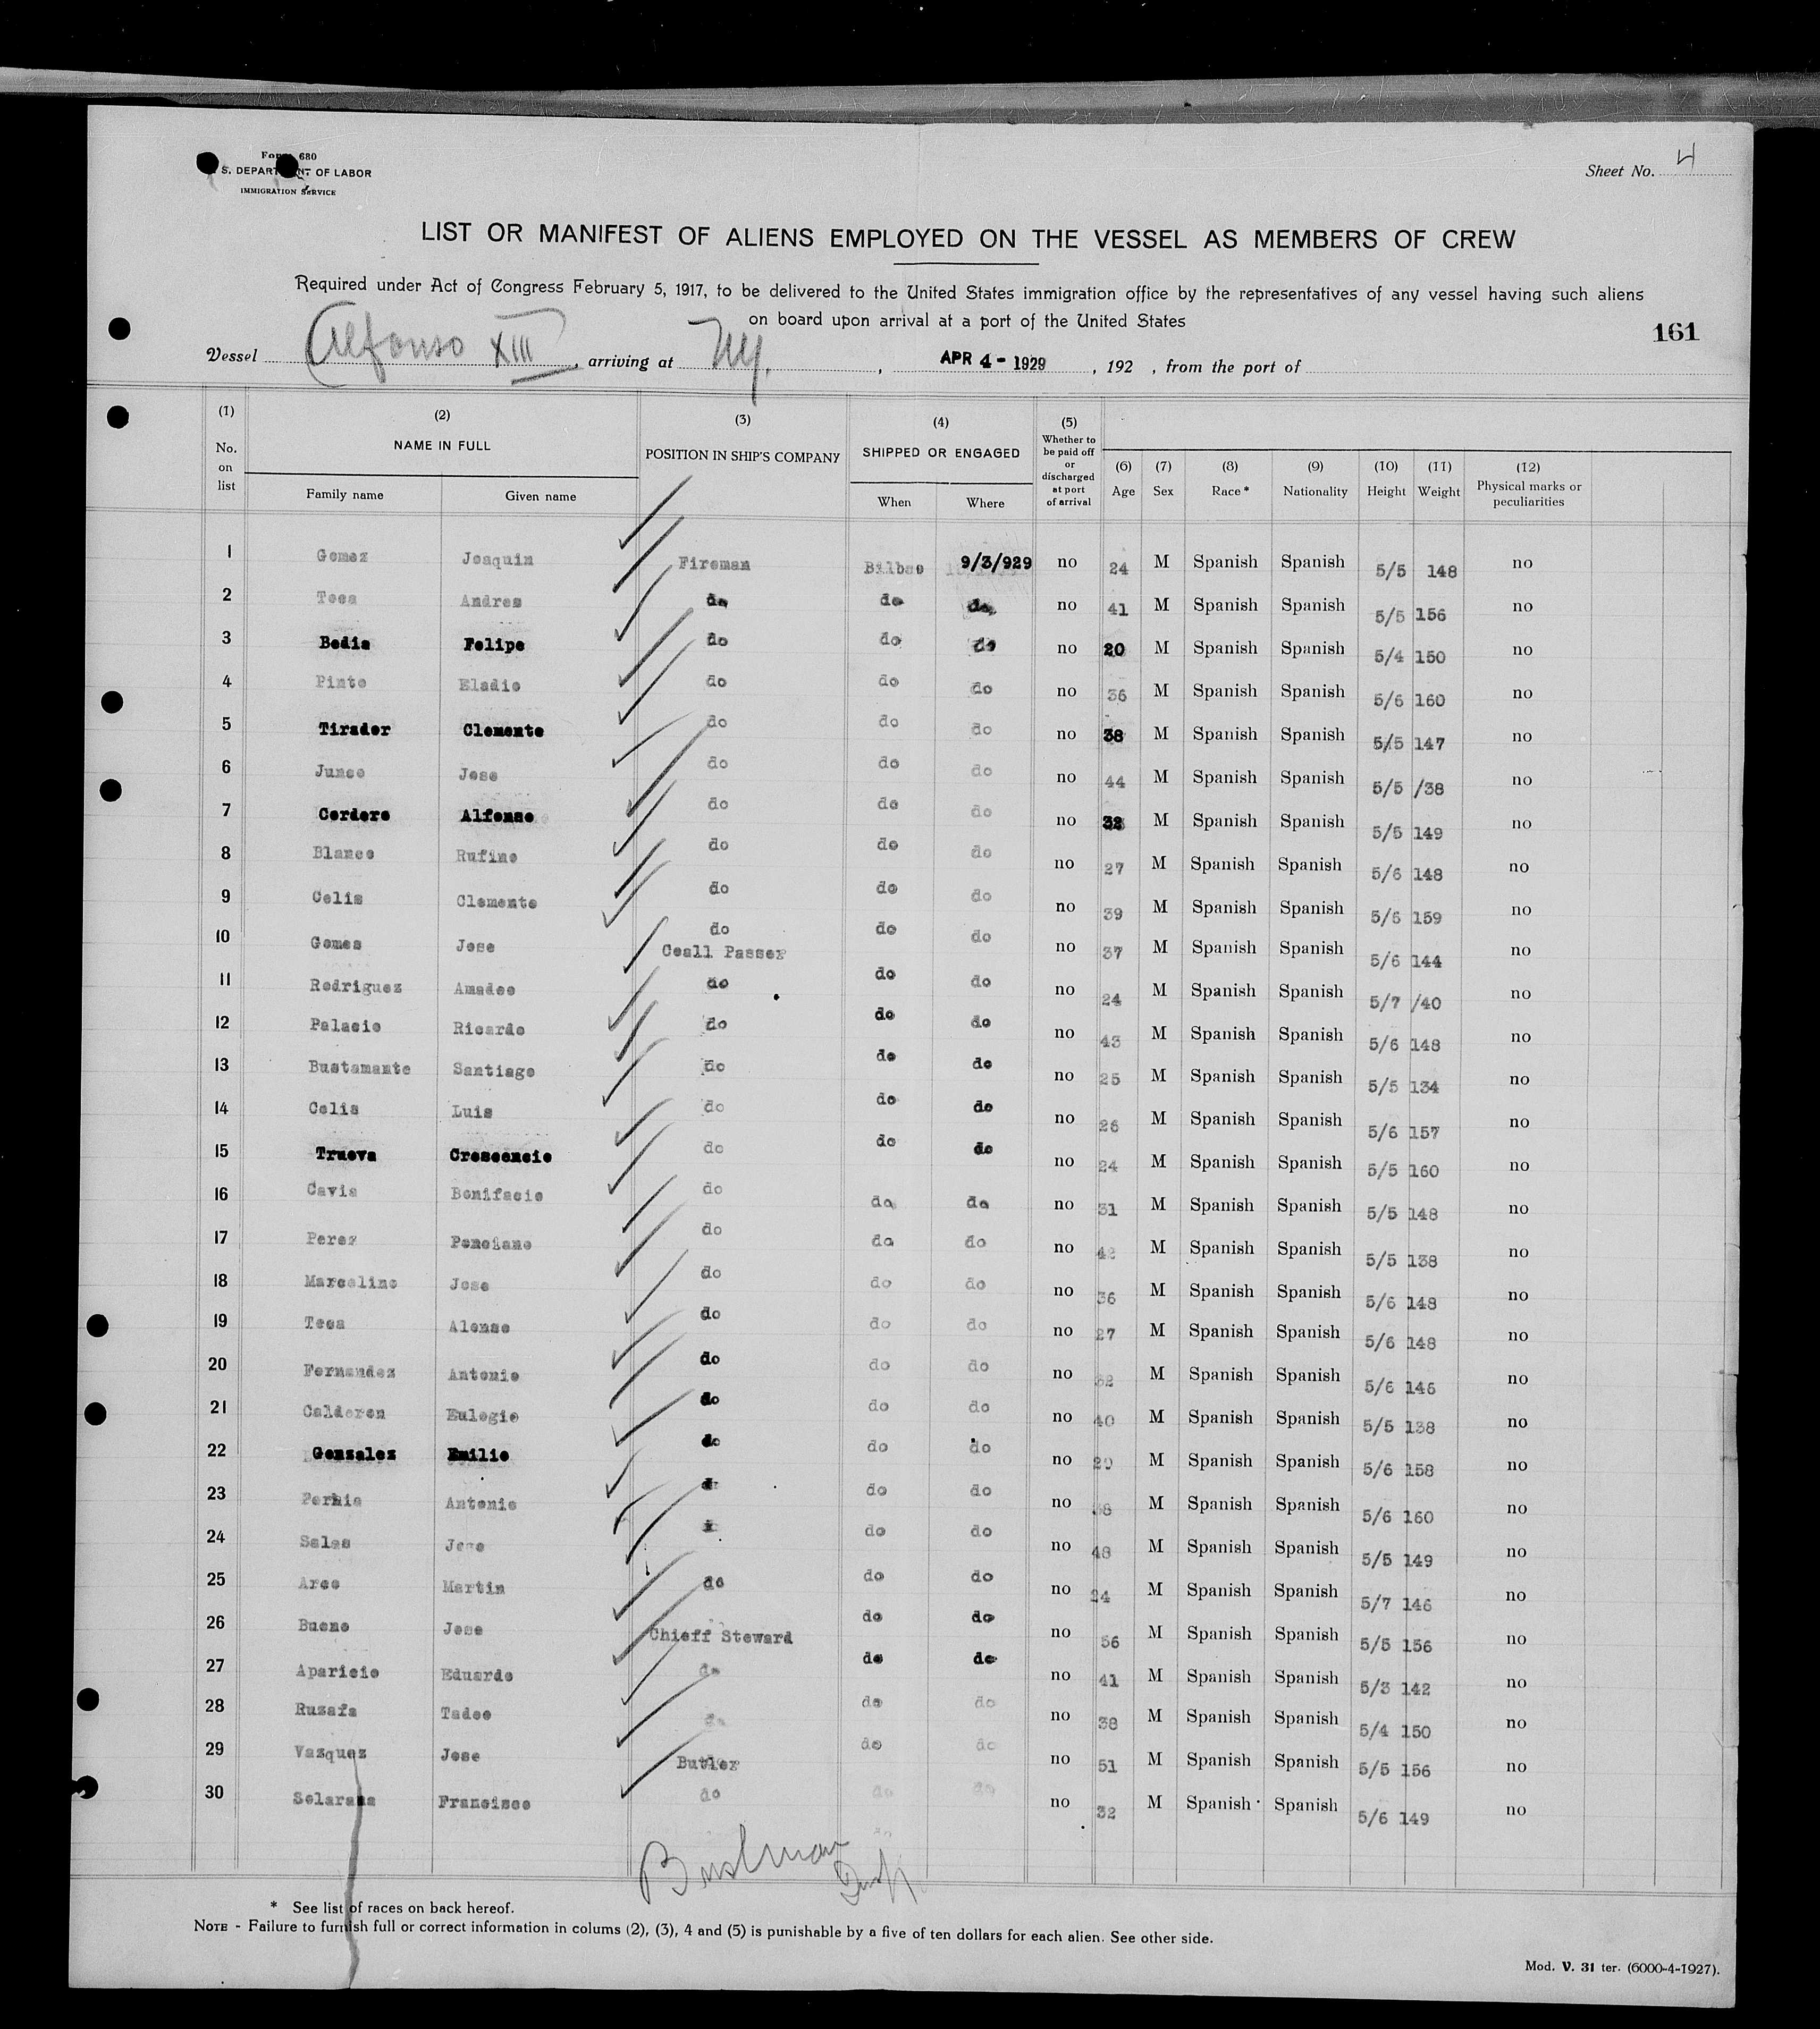 Form 680
S. DEPARTMENT OF LABOR
IMMIGRATION SERVICE
Sheet No. 4
LIST OR MANIFEST OF ALIENS EMPLOYED ON THE VESSEL AS MEMBERS OF CREW
Required under Act of Congress February 5, 1917, to be delivered to the United States immigration office by the representatives of any vessel having such aliens
on board upon arrival at a port of the United States
161
Vessel Alfonso XIII, arriving at Ny. , APR 4 - 1929 , 192 , from the port of
(1) No. on list (2) NAME IN FULL Family name Given name (3) POSITION IN SHIP'S COMPANY (4) SHIPPED OR ENGAGED When Where (5) Whether to be paid off or discharged at port of arrival (6) Age (7) Sex (8) Race * (9) Nationality (10) Height (11) Weight (12) Physical marks or peculiarities
1 Gomez Joaquin Fireman Bilbao 9/3/929 no 24 M Spanish Spanish 5/5 148 no
2 Teea Andres do do do no 41 M Spanish Spanish 5/5 156 no
3 Bedia Felipe do do do no 20 M Spanish Spanish 5/4 150 no
4 Pinto Eladio do do do no 36 M Spanish Spanish 5/6 160 no
5 Tirador Clemente do do do no 38 M Spanish Spanish 5/5 147 no
6 Junco Jose do do do no 44 M Spanish Spanish 5/5 /38 no
7 Cordero Alfonso do do do no M Spanish Spanish 5/5 149 no
8 Blanco Rufino do do do no 27 M Spanish Spanish 5/6 148 no
9 Celis Clemente do do do no 39 M Spanish Spanish 5/6 159 no
10 Gomes Jose do do do no 37 M Spanish Spanish 5/6 144 no
Coall Passer
11 Rodriguez Amadeo do do do no 24 M Spanish Spanish 5/7 /40 no
12 Palacio Ricardo do do do no 43 M Spanish Spanish 5/6 148 no
13 Bustamante Santiago do do do no 25 M Spanish Spanish 5/5 134 no
14 Celis Luis do do do no 26 M Spanish Spanish 5/6 157 no
15 Trueva Crescencio do do do no 24 M Spanish Spanish 5/5 160 no
16 Cavia Bonifacio do do do no 31 M Spanish Spanish 5/5 148 no
17 Perez Ponciano do do do no 42 M Spanish Spanish 5/5 138 no
18 Marcelino Jose do do do no 36 M Spanish Spanish 5/6 148 no
19 Teea Alonso do do do no 27 M Spanish Spanish 5/6 148 no
20 Fernandez Antonio do do do no M Spanish Spanish 5/6 146 no
21 Calderon Eulogio do do do no 40 M Spanish Spanish 5/5 138 no
22 Gonzalez Emilio do do do no 29 M Spanish Spanish 5/6 158 no
23 Pernia Antonio do do no M Spanish Spanish 5/6 160 no
24 Salas Jose do do no 48 M Spanish Spanish 5/5 149 no
25 Arce Martin do do do no 24 M Spanish Spanish 5/7 146 no
26 Bueno Jose Chieff Steward do do no 56 M Spanish Spanish 5/5 156 no
27 Aparicio Eduardo do do do no 41 M Spanish Spanish 5/3 142 no
28 Ruzafa Tadeo do do do no 38 M Spanish Spanish 5/4 150 no
29 Vazquez Jose Butler do do no 51 M Spanish Spanish 5/5 156 no
30 Solarana Francisco do do do no 32 M Spanish Spanish 5/6 149 no
* See list of races on back hereof.
NOTE - Failure to furnish full or correct information in colums (2), (3), 4 and (5) is punishable by a five of ten dollars for each alien. See other side.
Mod. V. 31 ter. (6000-4-1927).